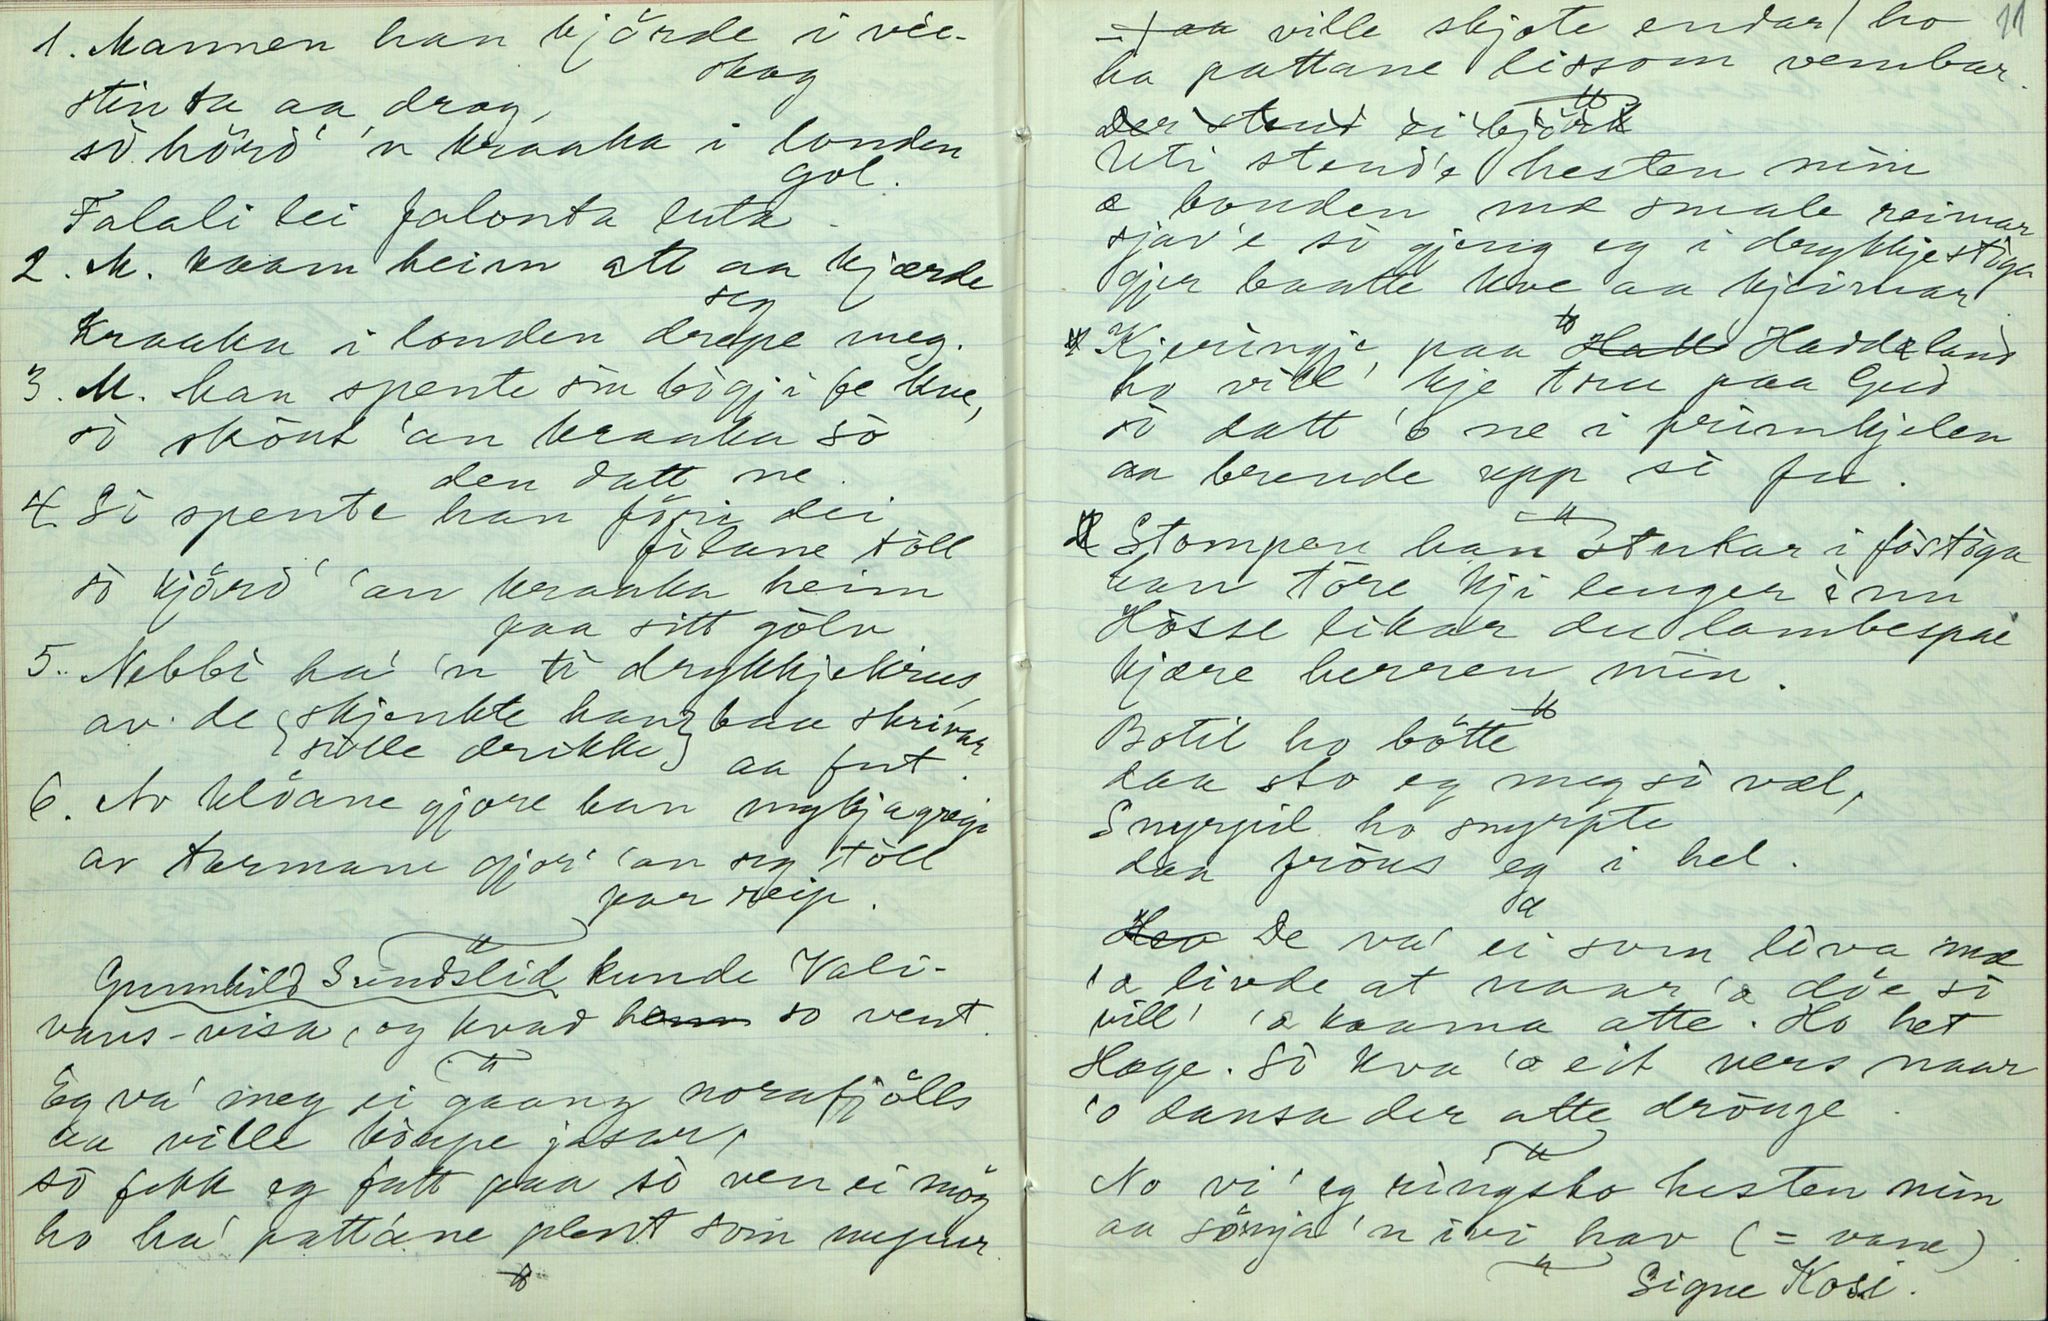 1. Mannen han kjörde i vée-
skog
stinta aa drog,
sò hörd' 'n kraaka i londen
gol.
Falali lei falonta luta.
2. M. kaam heim att aa kjærde
seg
Kraaka i londen drepe meg.
3. M. han spente sin bògji fe kne,
sò skòut 'an kraaka sò
den datt ne.
4. Sò spente han föri dei
filane töll
sò kjörd' 'an kraaka heim
paa sitt gòlv
5. Nebbi ha' 'n ti drykkjekrus,
av de skjenkte han baa skrivar
sille drikke aa fut.
6. Av klôane gjore han mykjagreip
av tarmane gjor' 'an seg töll
par reip.
Gunnhild Sundslid kunde Vali-
vans-visa, og kvad so vent.
Eg va' meg ei gaang norafjölls
aa ville kòupe jasar,
sò fekk eg fatt paa sò ven ei möy
ho ha' pattane plent som nupur
11
aa ville skjote endar) ho
ha pattane lissom vembar.
Der stend ei björk
Uti stend'e hesten min
e bonden mæ smale reimar
sjav'e sò gjenig eg i drykkjestöga
gjer baatte kve aa kjeimar
Kjeringje paa Haddeland
ho vill' kje tru paa Gud
sò datt 'o ne i primkjelen
aa brende upp si fu.
Stompen han stukar i fòstöga
han töre kji lenger inn
Hòsse likar du lambespae
kjære herren min.
Botil ho bötte
daa sto eg meg sò væl,
Snyrpil ho snyrpte
daa fröus eg i hel.
De va' ei som lôva mæ
'o livde at naar 'o döe sò
vill' 'o kaama atte. Ho het
Hæge. Sò kva 'o eit vers naar
'o dansa der atte dröuge.
No vi' eg ringsko hesten min
aa sömja 'n ivi hav (= vane)
Signe Kosi.